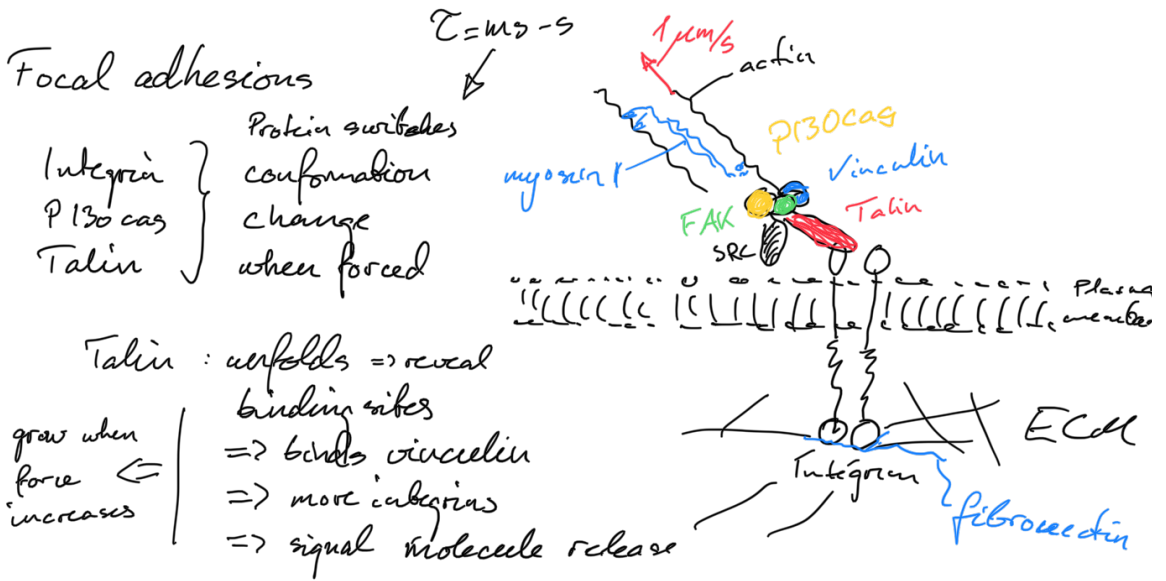 τ = ms - s
Focal adhesions
Protein switches
Integrin
conformation
P130cas
change
Talin
when forced
Talin : unfolds => reveal
binding sites
=> binds vinculin
=> more integrins
=> signal molecule release
grow when
force
increases
1 μm/s
actin
P130cas
Vinculin
FAK
Talin
SRC
Plasma
ECM
Integrin
fibronectin